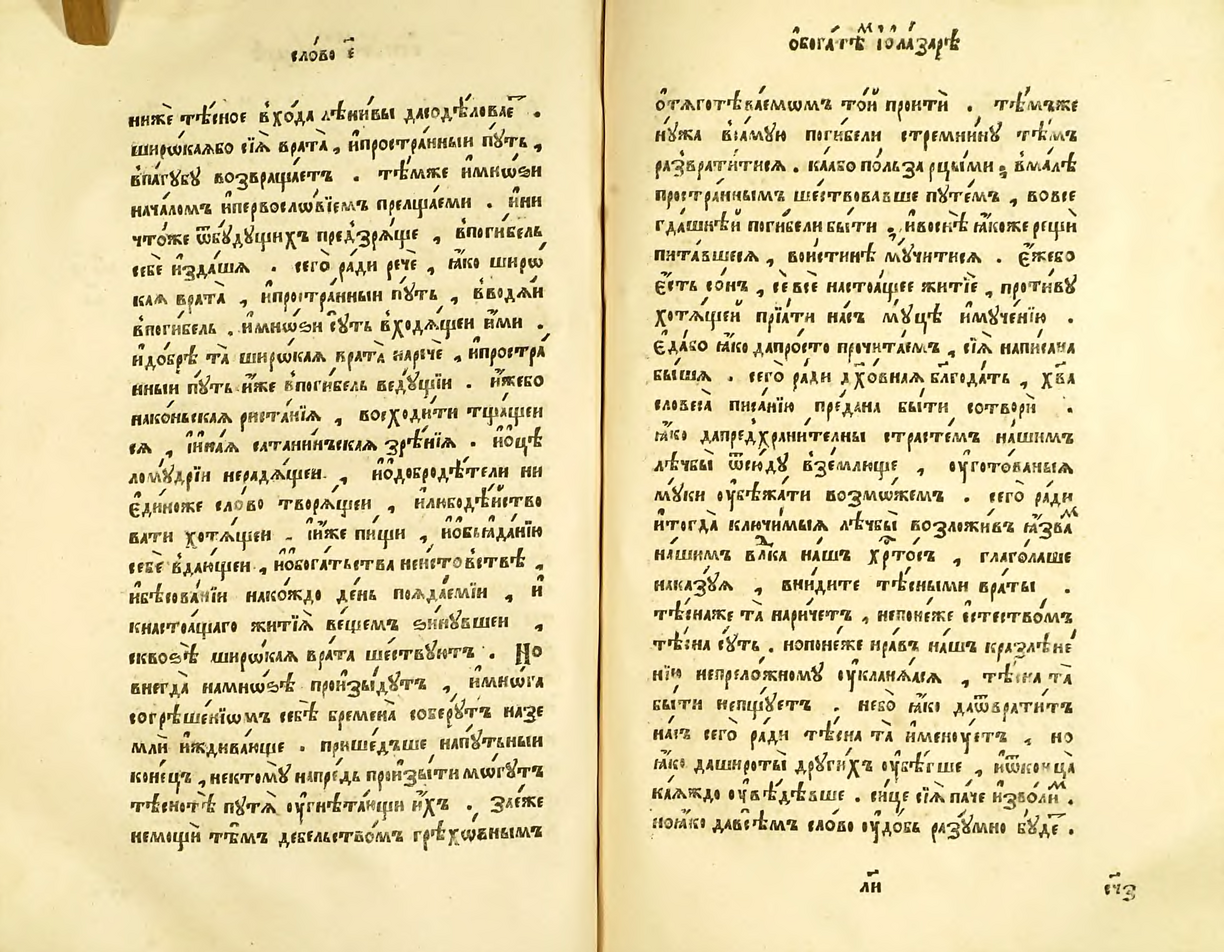 сло́во е҃
нижѐ тѣ́сное вхо́да лѣни́вы даcодѣ́ловае҃ .
широ́каѧбо сїѧ̀ врата̀ , и҆простра́нныи пꙋ́ть ,
впа́гꙋбꙋ возвраща́етъ . тѣ́мже и҆мнѡ́ѕи
нача́ломъ и҆первосло́вїемъ прелща́еми . и҆ни
что́же ѿбꙋ́дꙋщихъ предзрѧ́ще , впоги́бель
себѐ и҆зда́шѧ . сего̀ ра́ди речѐ , ꙗ҆́ко широ́
каѧ врата̀ , и҆простра́нныи пꙋ́ть , вводѧ́и
впоги́бель . и҆мнѡ́ѕи сꙋ́ть входѧ́щеи и҆́ми .
и҆добрѣ̀ та̀ широ́каѧ врата̀ нарѐче , и҆простра́
нныи пꙋ́ть и҆́же впоги́бель ведꙋ́щїи . и҆́жебо
нако́ньскаѧ риста́нїѧ , восходи́ти тща́щеи
сѧ , и҆и҆на́ѧ сатани́нъскаѧ зрѣ́нїѧ . и҆ѻ҆цѣ
ломꙋ́дрїи нерадѧ́щеи , и҆ѻ҆добродѣ́тели ни
є҆ди́ноже сло́во творѧ́щеи , и҆любодѣ́йство
вати хотѧ́щеи . и҆и҆́же пи́щи , и҆ѻ҆бьѧда́нїю
себѐ вдаю́щеи , и҆ѻ҆бога́тьства неи́стовствѣ ,
и҆бѣсова́нїи нако́ждо де́нь поѧда́емїи , и҆
кнастоѧ́щаго житїѧ̀ ве́щемъ ѕинꙋ́вшеи ,
сквоѕѣ̀ широ́каѧ врата̀ ше́ствꙋютъ . Но
внегда̀ намнѡ́ѕѣ произы́дꙋтъ , и҆мнѡ́га
согрѣше́нїѡмъ себѣ̀ бремена̀ соберꙋ́тъ назе
млѝ и҆ждива́юще . прише́дъше напꙋ́тьныи
коне́цъ , нектомꙋ̀ напре́дь произы́ти мо́гꙋтъ
тѣснотѣ̀ пꙋтѧ̀ ѹ҆гнѣта́ющи и҆́хъ . зане́же
немо́щи тѣ́мъ дебе́льствомъ грѣхо́внымъ
ѻ҆бога́тѣмъ и҆ѻ҆ла́зарѣ
ѻ҆тѧготѣва́емѡмъ то́и проитѝ . тѣ́мъже
нꙋ́жа всамꙋ́ю поги́бели стремни́нꙋ тѣ́мъ
развратити́сѧ . ка́ѧбо по́льза рцы́ми ; вма́лѣ
простра́ннымъ ше́ствовавше пꙋте́мъ , вовсе
гда́шнѣй поги́бели бы́ти ; и҆восиѣ̀ ꙗ҆́коже рещѝ
пита́вшесѧ , вои́стинѣ мꙋ́читисѧ . є҆́жебо
є҆́сть со́нъ , се́все настоѧ́щее житїѐ , проти́вꙋ
хотѧ́щей прїѧ́ти на́съ мꙋ́цѣ и҆мꙋче́нїю .
є҆да́бо ꙗ҆́ко дапро́сто прочита́емъ , сїѧ̀ напи́сана
бы́шѧ . сего̀ ра́ди дх҃о́внаѧ бл҃года́ть , хв҃а
словеса̀ писа́нїю пре́дана бы́ти сотворѝ .
ꙗ҆́ко дапредхрани́телны страсте́мъ на́шимъ
лѣ́чбы ѿсю́дꙋ взе́млюще , ѹ҆гото́ваныѧ
мꙋ́ки ѹ҆бѣжа́ти возмо́жемъ . сего̀ ра́ди
и҆тогда̀ ключи́мыѧ лѣ́чбы возложи́въ ꙗ҆́звамъ
на́шимъ влⷣка на́шъ хрⷭ҇то́съ , глаго́лаше
наказꙋ́ѧ , вни́дите тѣ́сными враты̀ .
тѣ́снаже та̀ нарича́етъ , непоне́же є҆стество́мъ
тѣ́сна сꙋ́ть . нопоне́же нра́въ на́шъ кразлѣне́
нїю непрело́жномꙋ ѹ҆клани́лсѧ , тѣ́сна та̀
бы́ти непщꙋ́етъ . небо̀ ꙗ҆́ко даѿврати́тъ
на́съ сего̀ ра́ди тѣ́сна та̀ и҆менꙋ́етъ , но
ꙗ҆́ко дашироты̀ дрꙋги́хъ ѹ҆бѣ́гше , и҆ѿконца̀
ка́ѧждо ѹ҆вѣ́дѣвше . си́це сїѧ̀ па́че и҆зво́лимъ .
ноꙗ҆́ко давсѣ́мъ сло́во ѹ҆до́бь разꙋ́мно бꙋ́де .
ли
сч҃з